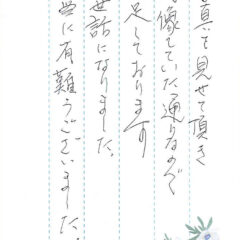 真を見せて頂き
像していた通りなので
足しております
世話になりました。
に有難うございました。